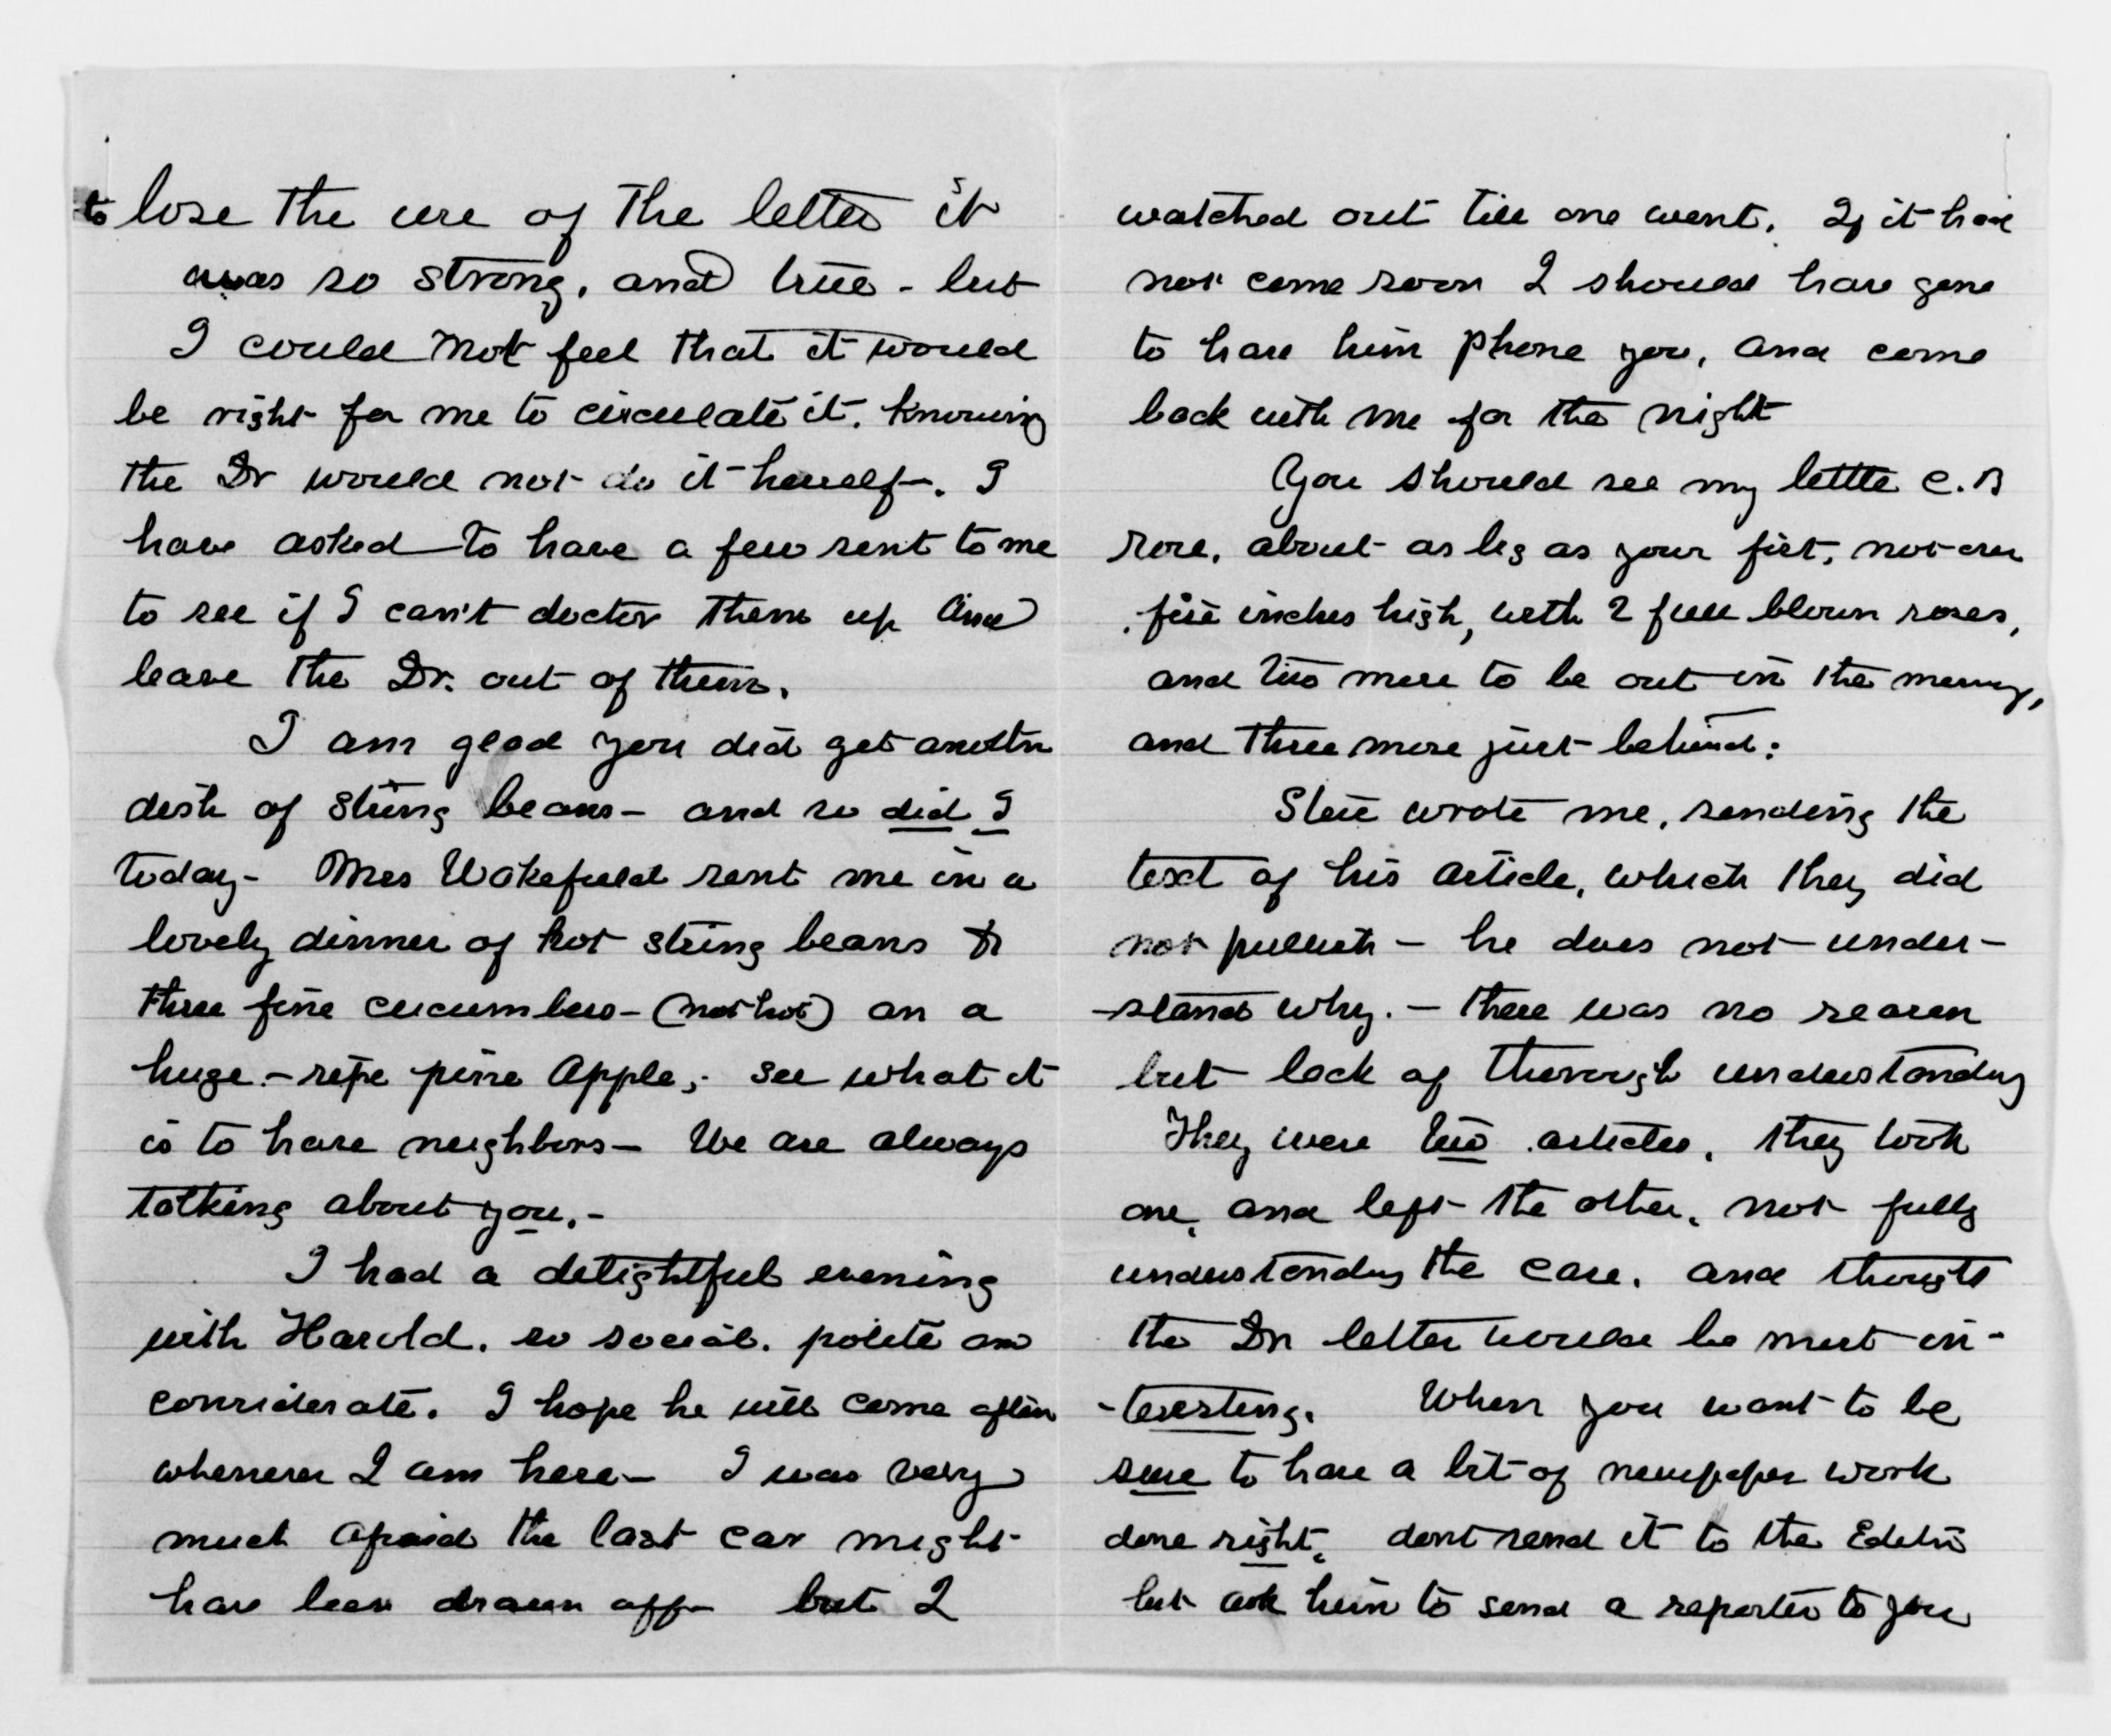 to lose the use of the letter it
was so strong, and true - but
I could not feel that it would
be right for me to circulate it. Knowing
the Dr would not do it herself. I
have asked to have a few sent to me
to see if I can't doctor them up and
leave the Dr. out of them.
I am glad you did get another
dish of string beans - and so did I
today - Mrs Wakefield sent me in a
lovely dinner of hot string beans &
three fine cucumbers - (not hot) an a
huge - ripe pine apple, - see what it
is to have neighbors - We are always
talking about you. -
I had a delightful evening
with Harold. so social. polite and
considerate. I hope he will come often
whenever I am here - I was very
much afraid the last car might
have been drawn off - but I
watched out till one went. If it had
not come soon I should have gone
to have him phone you, and come
back with me for the night
You should see my little C.B
rose, about as big as your fist, not over
five inches high, with 2 full blown roses,
and two more to be out in the morning,
and three more just behind.
wrote me, sending the
text of his article, which they did
not publish - he does not under-
-stand why. - there was no reason
but lack of thorough understanding
They were two articles, they took
one, and left the other, not fully
understanding the case, and thought
the Dr letter would be most in-
-teresting. When you want to be
sure to have a bit of newspaper work
done right, dont send it to the Editor
but ask him to send a reporter to you